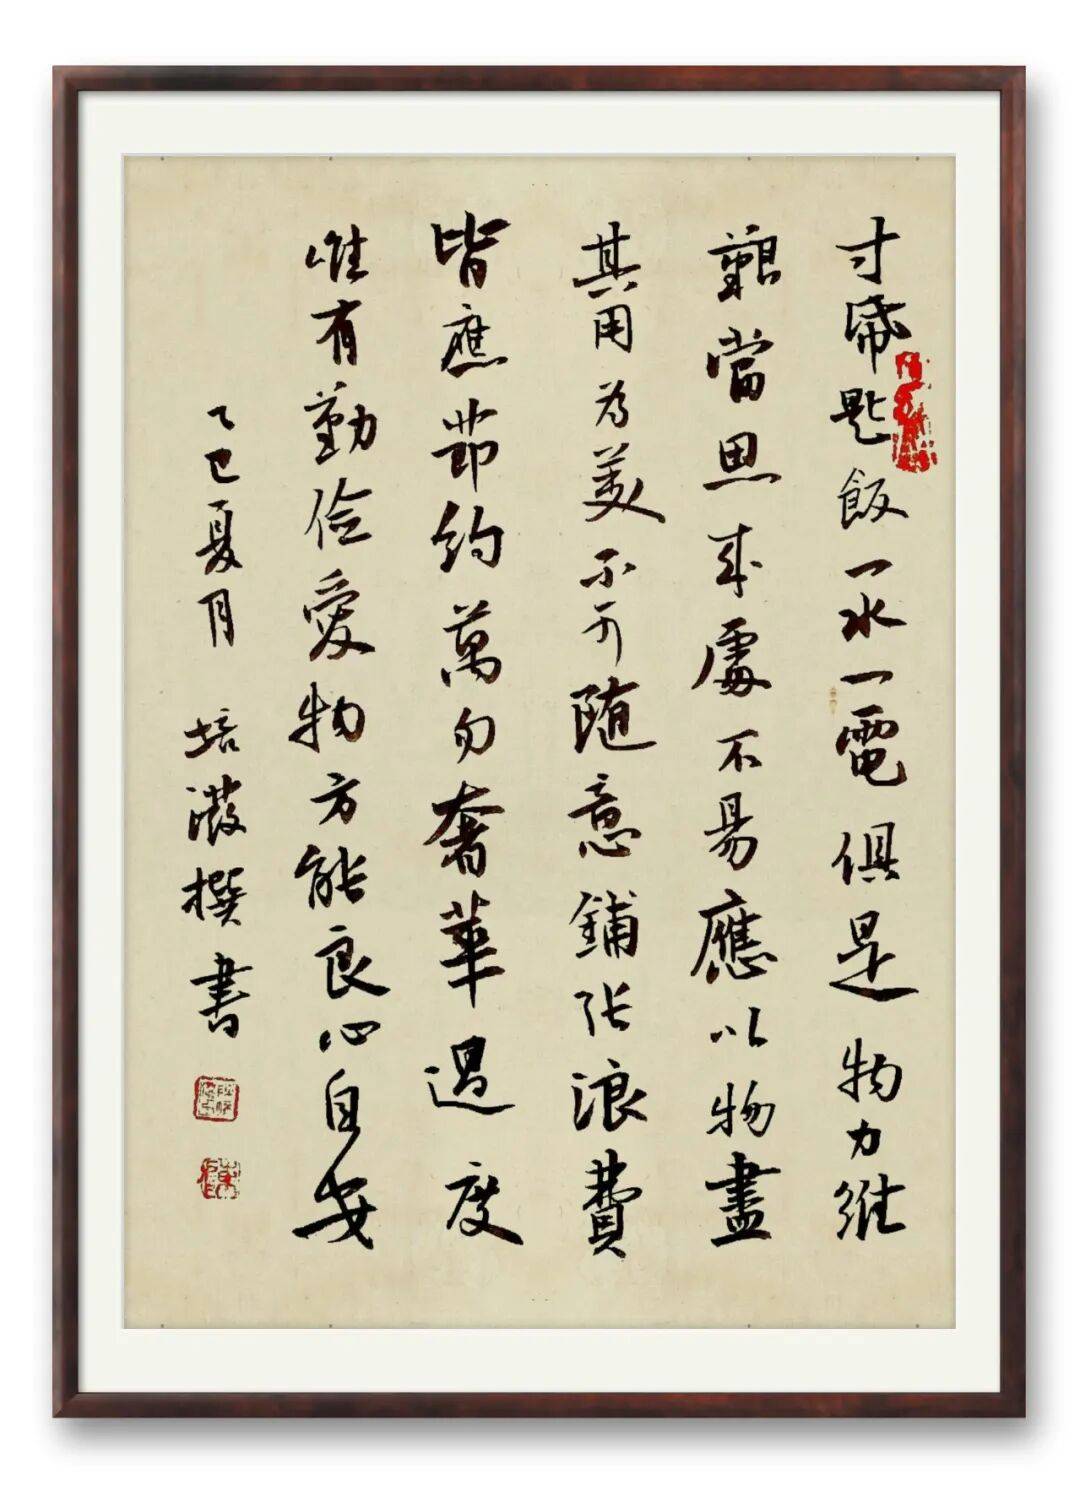 寸帋匙飯一水一電俱是物力維
艱當思来處不易應以物盡
其用為美不可随意鋪张浪費
皆應节约萬勿奢華過度
惟有勤俭愛物方能良心自安
乙巳夏月 培澂撰書
陳